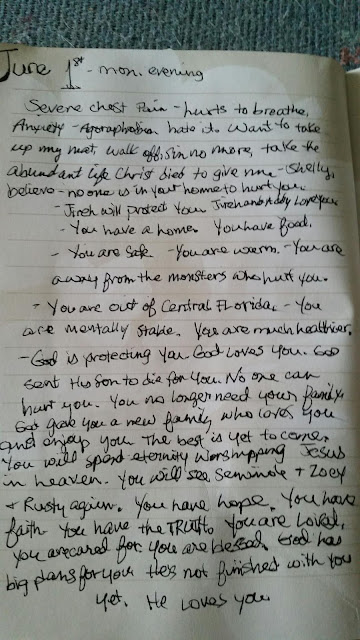 June 1st - mon. evening
Severe chest Pain - hurts to breathe,
Anxiety - Agoraphobia hate it. Want to take
up my mat, walk off, Sin no more, take the
abundant life Christ died to give me - Shelly,
believe - no one is in your home to hurt you.
- Jireh will protect you. Jireh and Addy Love you
- You have a home. You have food.
- You are safe - You are warm. - You are
away from the monsters who hurt you.
- You are out of Central Florida, - You
are mentally stable. You are much healthier.
- God is protecting you. God loves you. God
sent His Son to die for you. No one can
hurt you. You no longer need your family.
God gave you a new family who loves you
and enjoy you. The best is yet to come.
You will spend eternity worshipping Jesus
in heaven. You will see Seminole + Zoey
+ Rusty again. You have hope. You have
faith. You have the TRUTH. You are loved,
you are cared for. You are blessed. God has
big plans for you. He's not finished with you
yet. He loves you